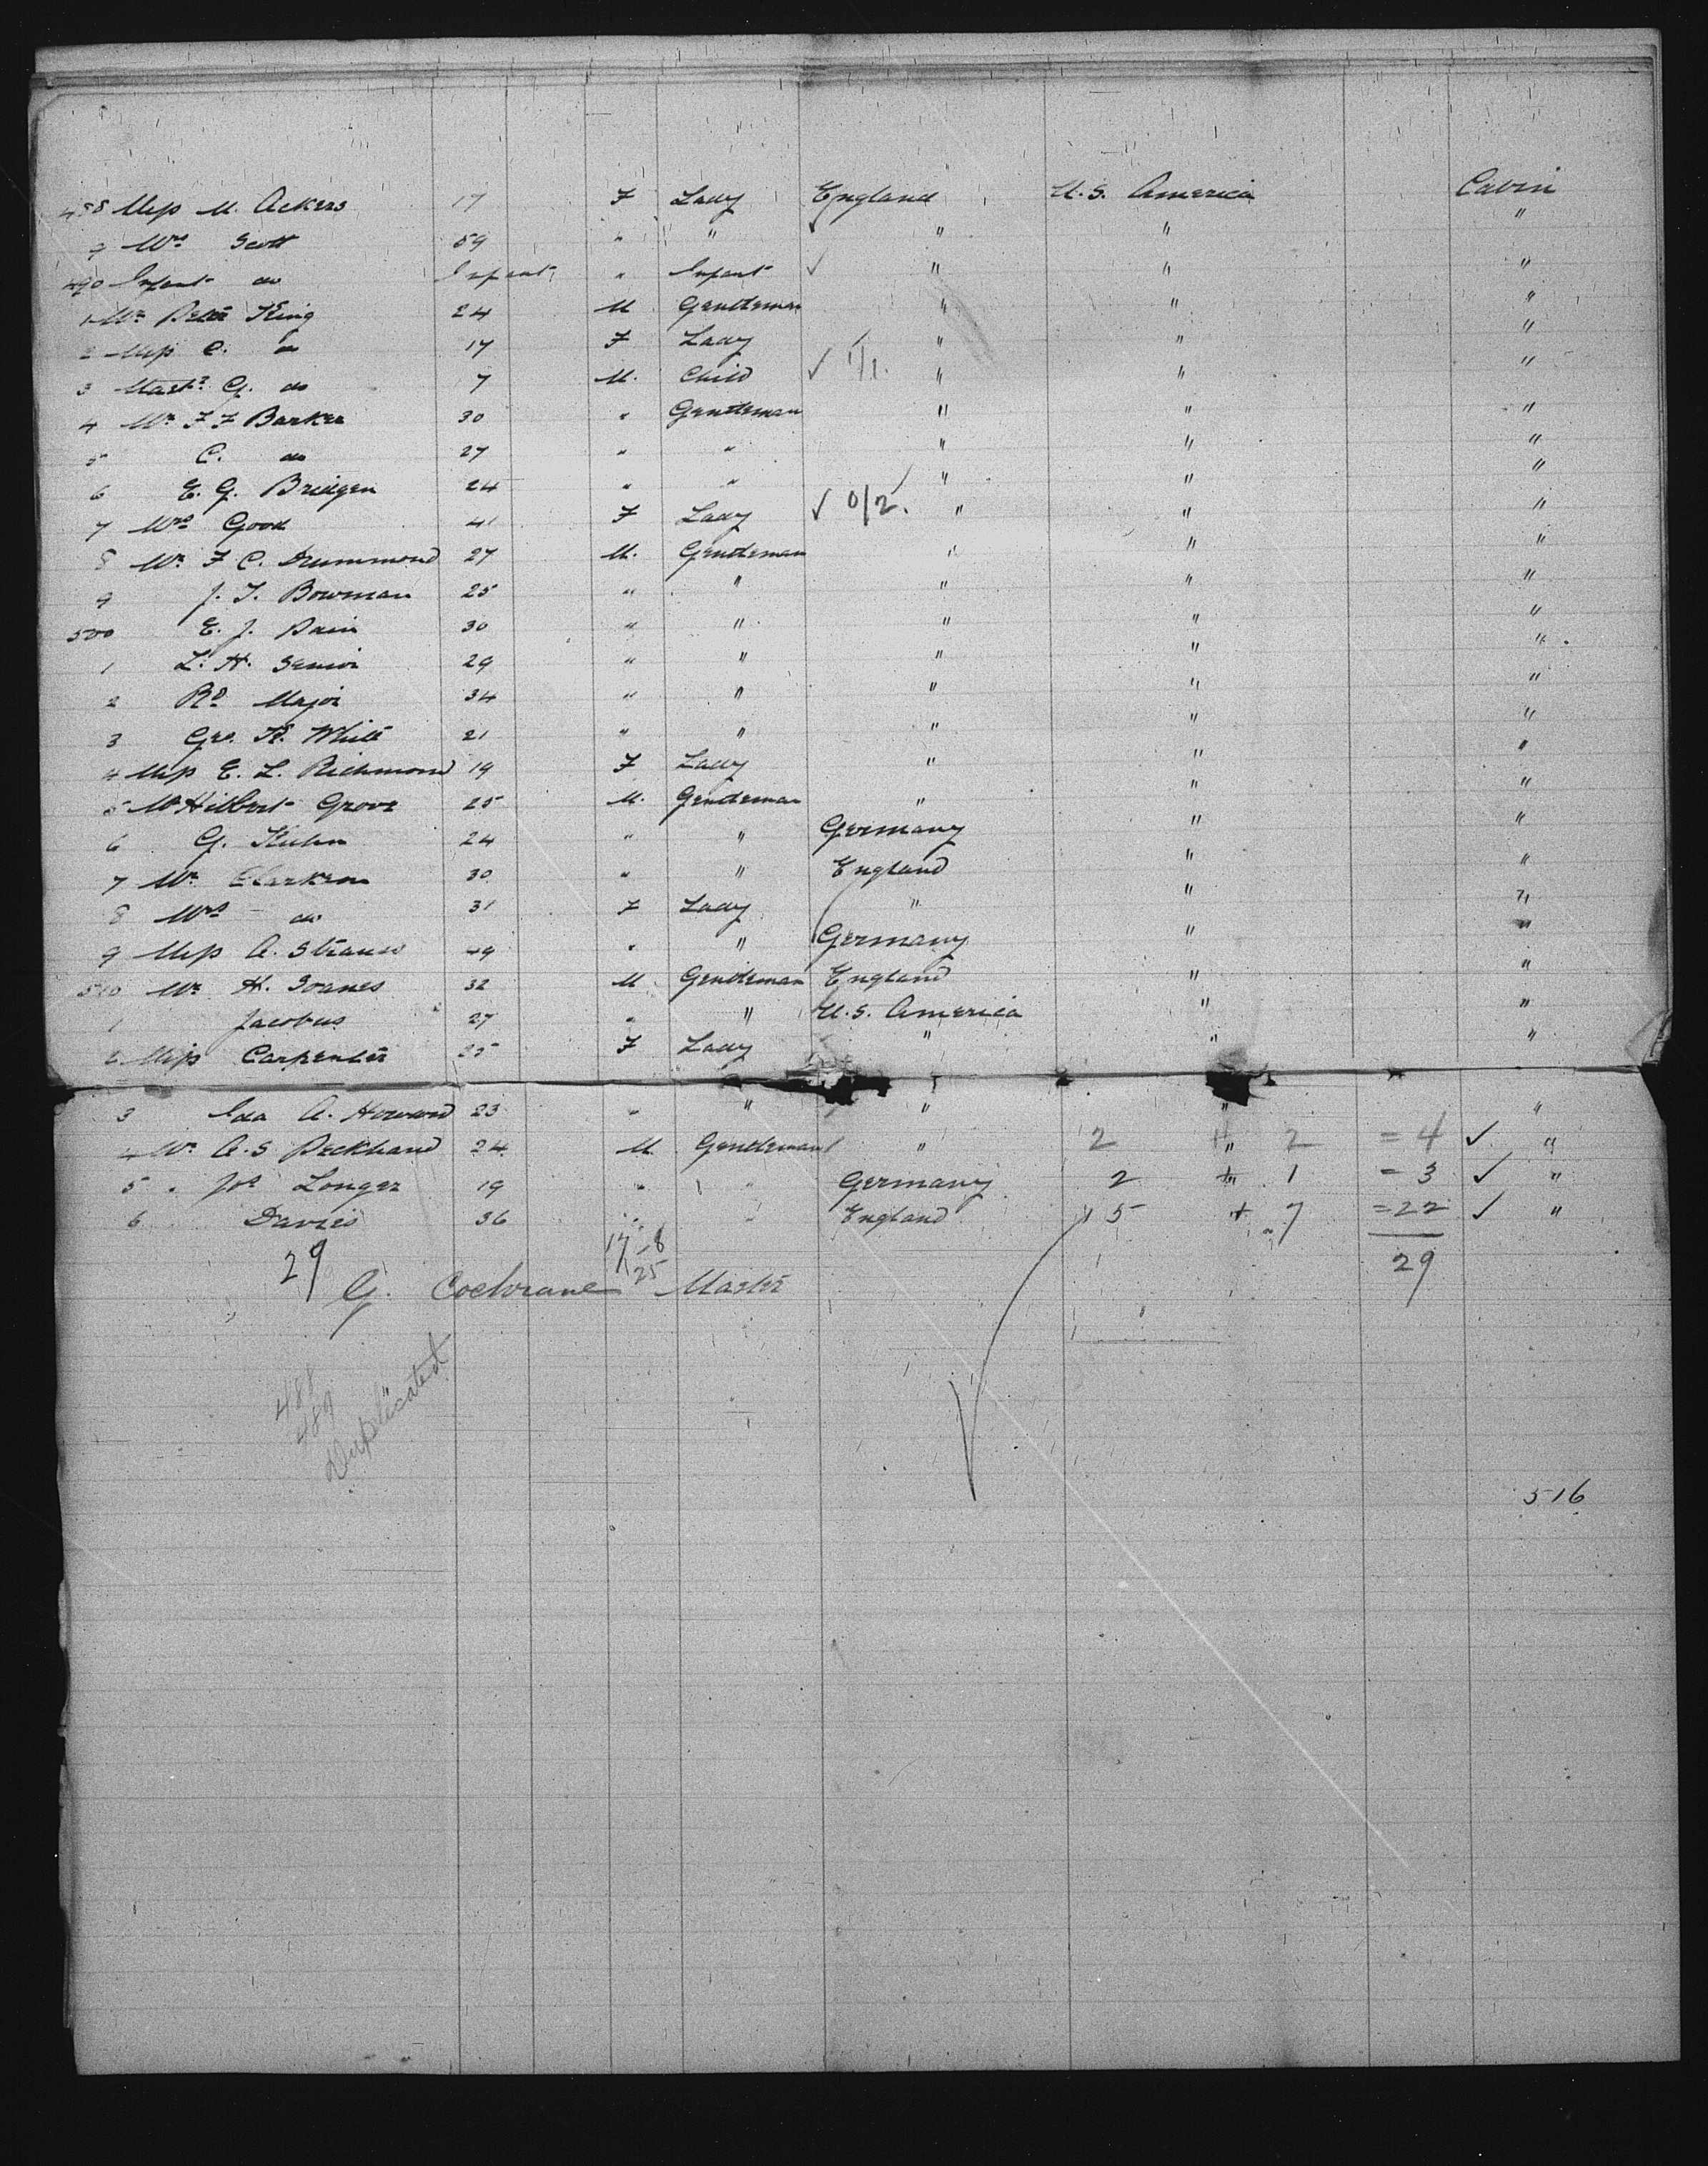 488 Miss M. Ackers 17 F Lady England U.S. America Cabin
9 Mrs Scott 59 " " " " "
490 Infant do Infant " Infant ✓ " " "
1 Mr Peter King 24 M Gentleman " " "
2 Miss C. do 17 F Lady " " "
3 Mastr G. do 7 M. Child ✓ 1/1. " " "
4 Mr F F Barker 30 " Gentleman " " "
5 C. do 27 " " " " "
6 E. G. Bridgen 24 " " " " "
7 Mrs Good 41 F Lady ✓ 0/2. " " "
8 Mr F C. Drummond 27 M. Gentleman " " "
9 J. T. Bowman 25 " " " " "
500 E. J. Dain 30 " " " " "
1 L. H. Senior 29 " " " " "
2 Rd Major 34 " " " " "
3 Geo. H. White 21 " " " " "
4 Miss E. L. Richmond 19 F Lady " " "
5 Mr Hilbert Grove 25 M. Gentleman " " "
6 G. Kuhn 24 " " Germany " "
7 Mr Clarkson 30 " " England " "
8 Mrs do 31 F Lady " " "
9 Miss A. Strauss 49 " " Germany " "
510 Mr H. Soanes 32 M Gentleman England " "
1 Jacobus 27 " " U.S. America " "
2 Miss Carpenter 25 F Lady " " "
3 Ida A. Howard 23 " " " " "
4 Mr A. S Peckham 24 M Gentleman " 2 + " 2 = 4 ✓ "
5 " Jos Longer 19 " " Germany 2 + " 1 = 3 ✓ "
6 Davies 36 " " England 15 + 7 = 22 ✓ "
29 17-8 29
25
G. Cochrane Master
488
489
Duplicated
516